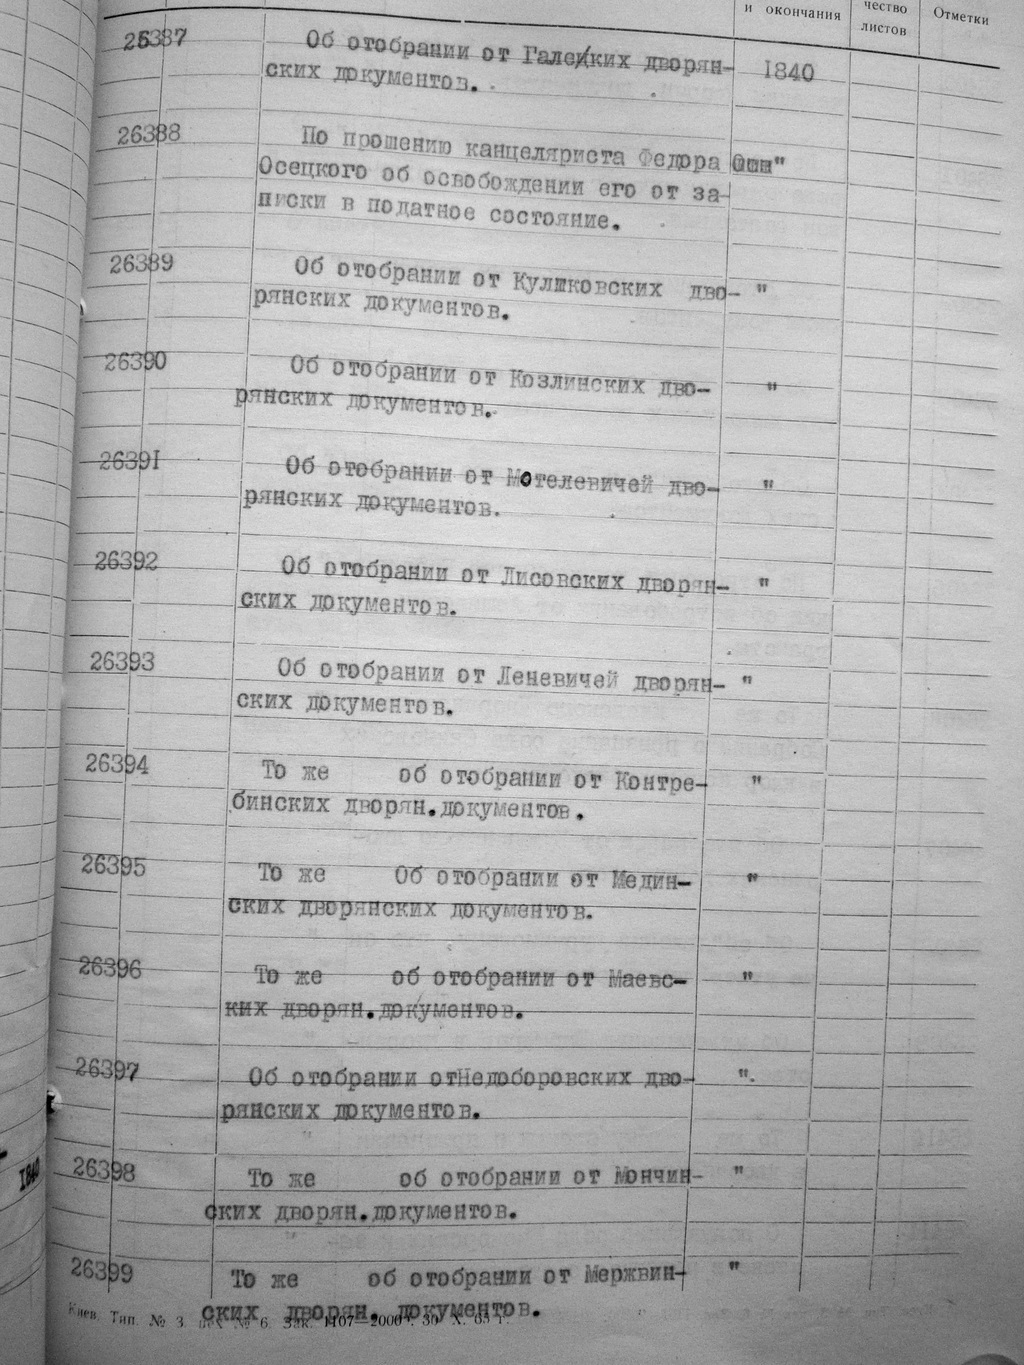 и окончания
чество
листов
Отметки
26387 Об отобрании от Галецких дворян- 1840
ских документов.
26388 По прошению канцеляриста Федора "
Осецкого об освобождении его от за-
писки в податное состояние.
26389 Об отобрании от Куликовских дво- "
рянских документов.
26390 Об отобрании от Козлинских дво- "
рянских документов.
26391 Об отобрании от Мотелевичей дво- "
рянских документов.
26392 Об отобрании от Лисовских дворян- "
ских документов.
26393 Об отобрании от Леневичей дворян- "
ских документов.
26394 То же об отобрании от Контре- "
бинских дворян.документов.
26395 То же Об отобрании от Медин- "
ских дворянских документов.
26396 То же об отобрании от Маевс- "
ких дворян.документов.
26397 Об отобрании отНедоборовских дво- ".
рянских документов.
1840
26398 То же об отобрании от Мончин- "
ских дворян.документов.
26399 То же об отобрании от Мержвин- "
ских дворян. документов.
Киев. Тип. № 3, цех № 6. Зак. 1107—2000. 30 X. 63 г.